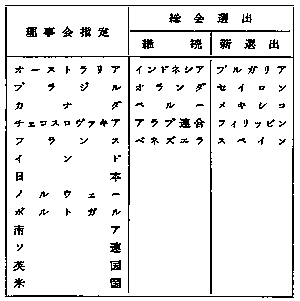 理事会指定 総会選出
継続 新選出
オーストラリア インドネシア ブルガリア
ブラジル オランダ セイロン
カナダ ペルー メキシコ
チェコスロヴァキア アラブ連合 フィリッピン
フランス ベネズエラ スペイン
インド
日本
ノルウェー
ポルトガル
南ア
ソ連
英国
米国